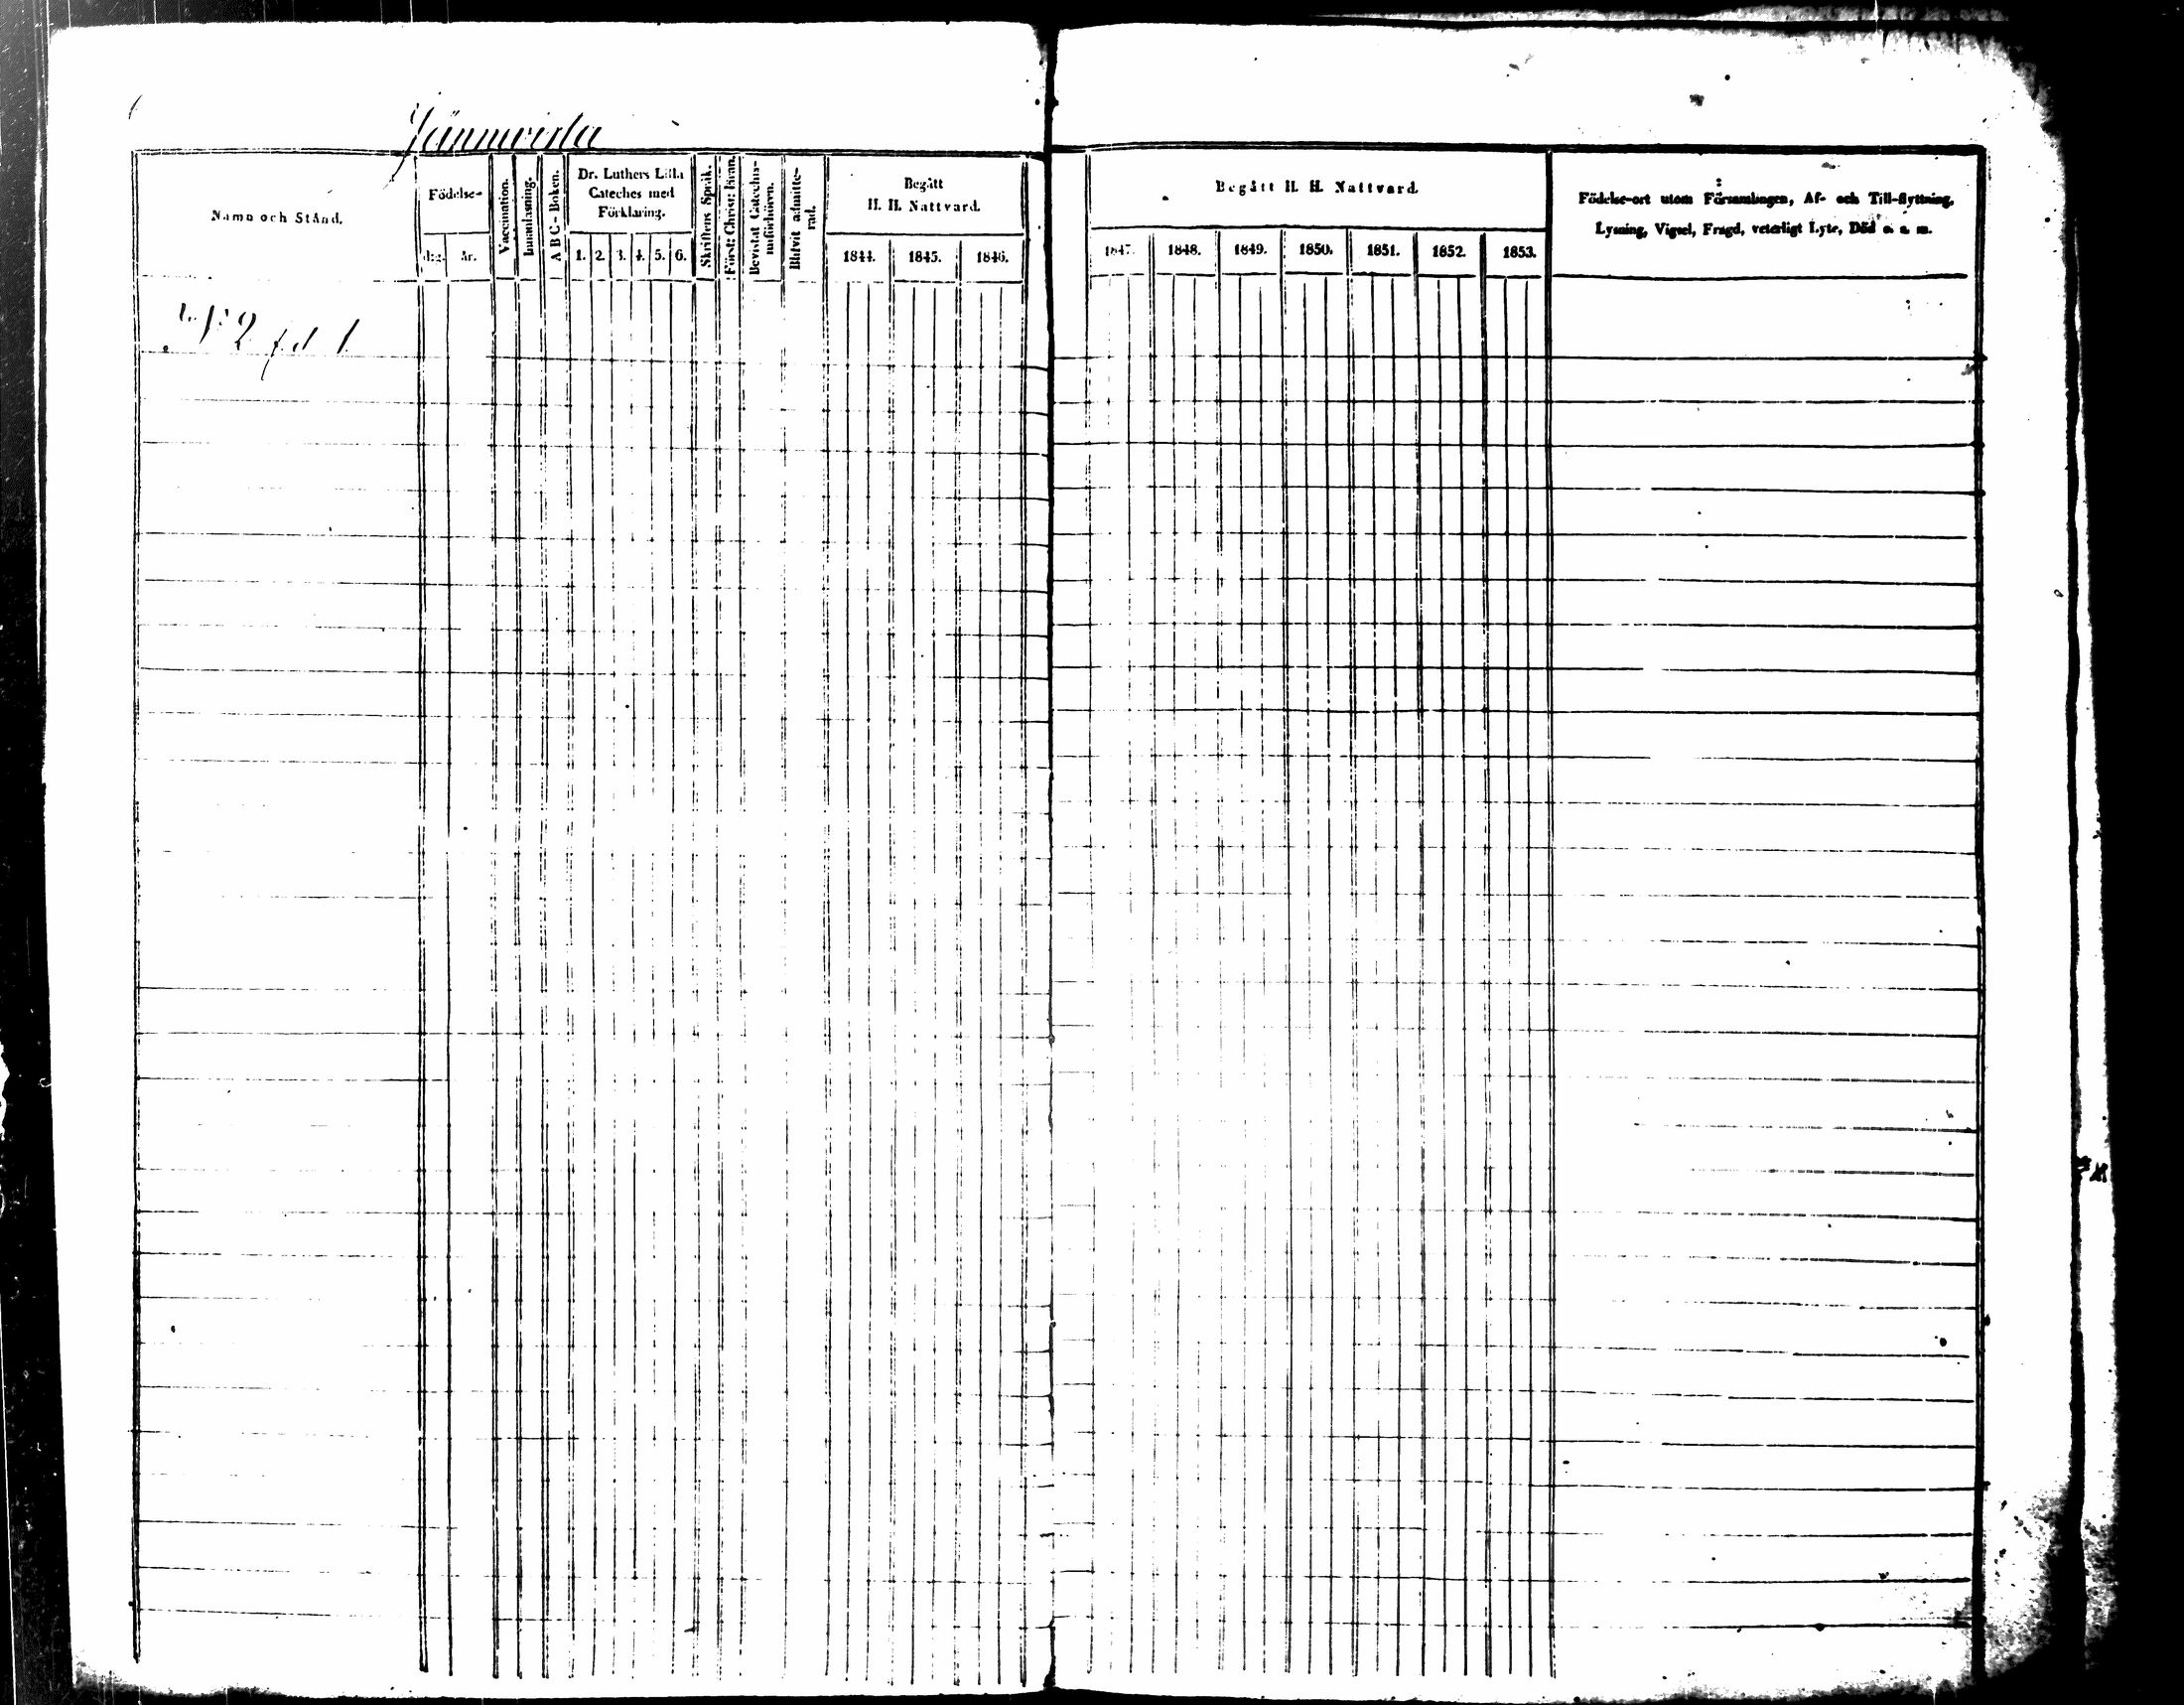 Jännevirta
Namn och Stånd.
Födelse-
dag.
år.
Vaccination.
Innanläsning.
A B C - Boken.
Dr. Luthers Lilla
Cateches med
Förklaring.
1. 2. 3. 4. 5. 6.
Skriftens Språk.
Bevistat Catechis-
miförhören.
Blifvit admitte-
rad.
Begått
H. H. Nattvard.
1844. 1845. 1846.
Begått H. H. Nattvard.
1847. 1848. 1849. 1850. 1851. 1852. 1853.
Födelse-ort utom Församlingen, Af- och Till-flyttning,
Lysning, Vigsel, Frägd, veterligt Lyte, Död o. s. m.
2 fd 1